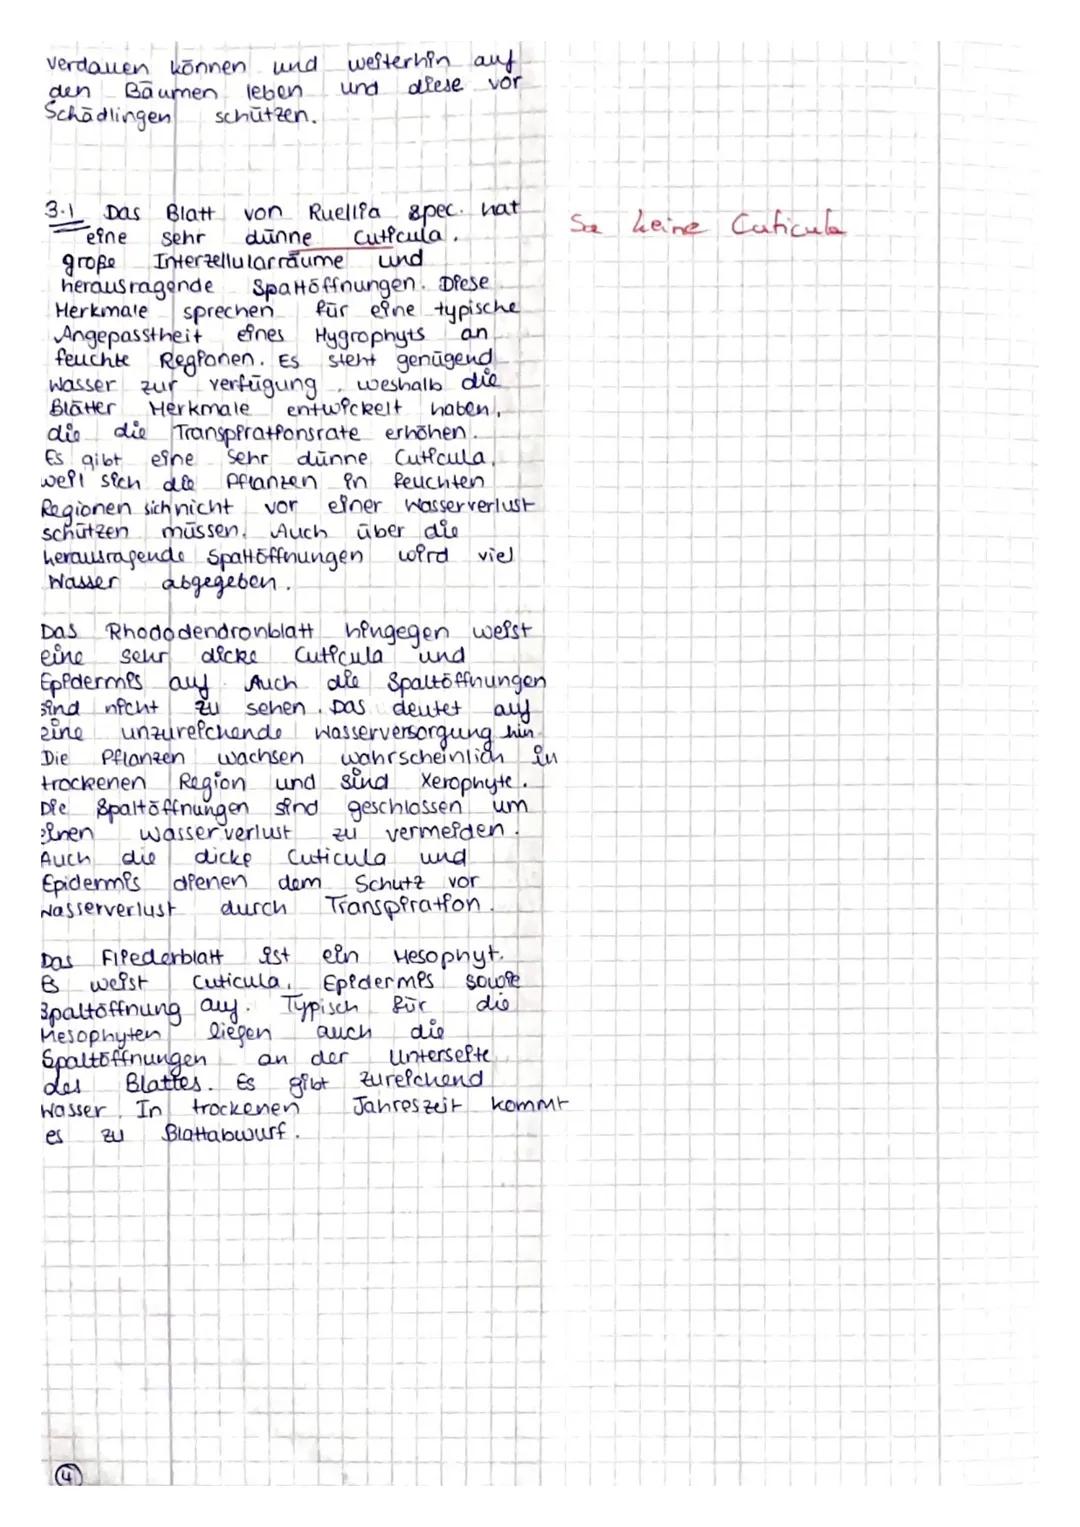 verdauen können und weiterhin auf
den Bäumen leben und diese vor
Schädlingen schützen.
3.1 Das Blatt von Ruellia spec. hat
eine sehr dünne Cuticula,
große Interzellularräume und
herausragende Spaltöffnungen. Diese
Merkmale sprechen für eine typische
Angepasstheit eines Hygrophyts an
feuchte Regionen. Es steht genügend
Wasser zur verfügung, weshalb die
Blätter Merkmale entwickelt haben,
die die Transpirationsrate erhöhen.
Es gibt eine sehr dünne Cuticula,
weil sich die Pflanzen in feuchten
Regionen sich nicht vor einer Wasserverlust
schützen müssen. Auch über die
herausragende Spaltöffnungen wird viel
Wasser abgegeben.
Das Rhododendronblatt hingegen weist
eine sehr dicke Cuticula und
Epidermis auf. Auch die Spaltöffnungen
sind nicht zu sehen. Das deutet auf
eine unzureichende Wasserversorgung hin.
Die Pflanzen wachsen wahrscheinlich in
trockenen Region und sind Xerophyte.
Die Spaltöffnungen sind geschlossen um
einen Wasserverlust zu vermeiden.
Auch die dicke Cuticula und
Epidermis dienen dem Schutz vor
Wasserverlust durch Transpiration.
Das Fliederblatt ist ein Mesophyt.
Es weist Cuticula, Epidermis sowie
Spaltöffnung auf. Typisch für die
Mesophyten liegen auch die
Spaltöffnungen an der Unterseite
des Blattes. Es gibt zureichend
Wasser. In trockenen Jahreszeit kommt
es zu Blattabwurf.
keine Cuticula
4